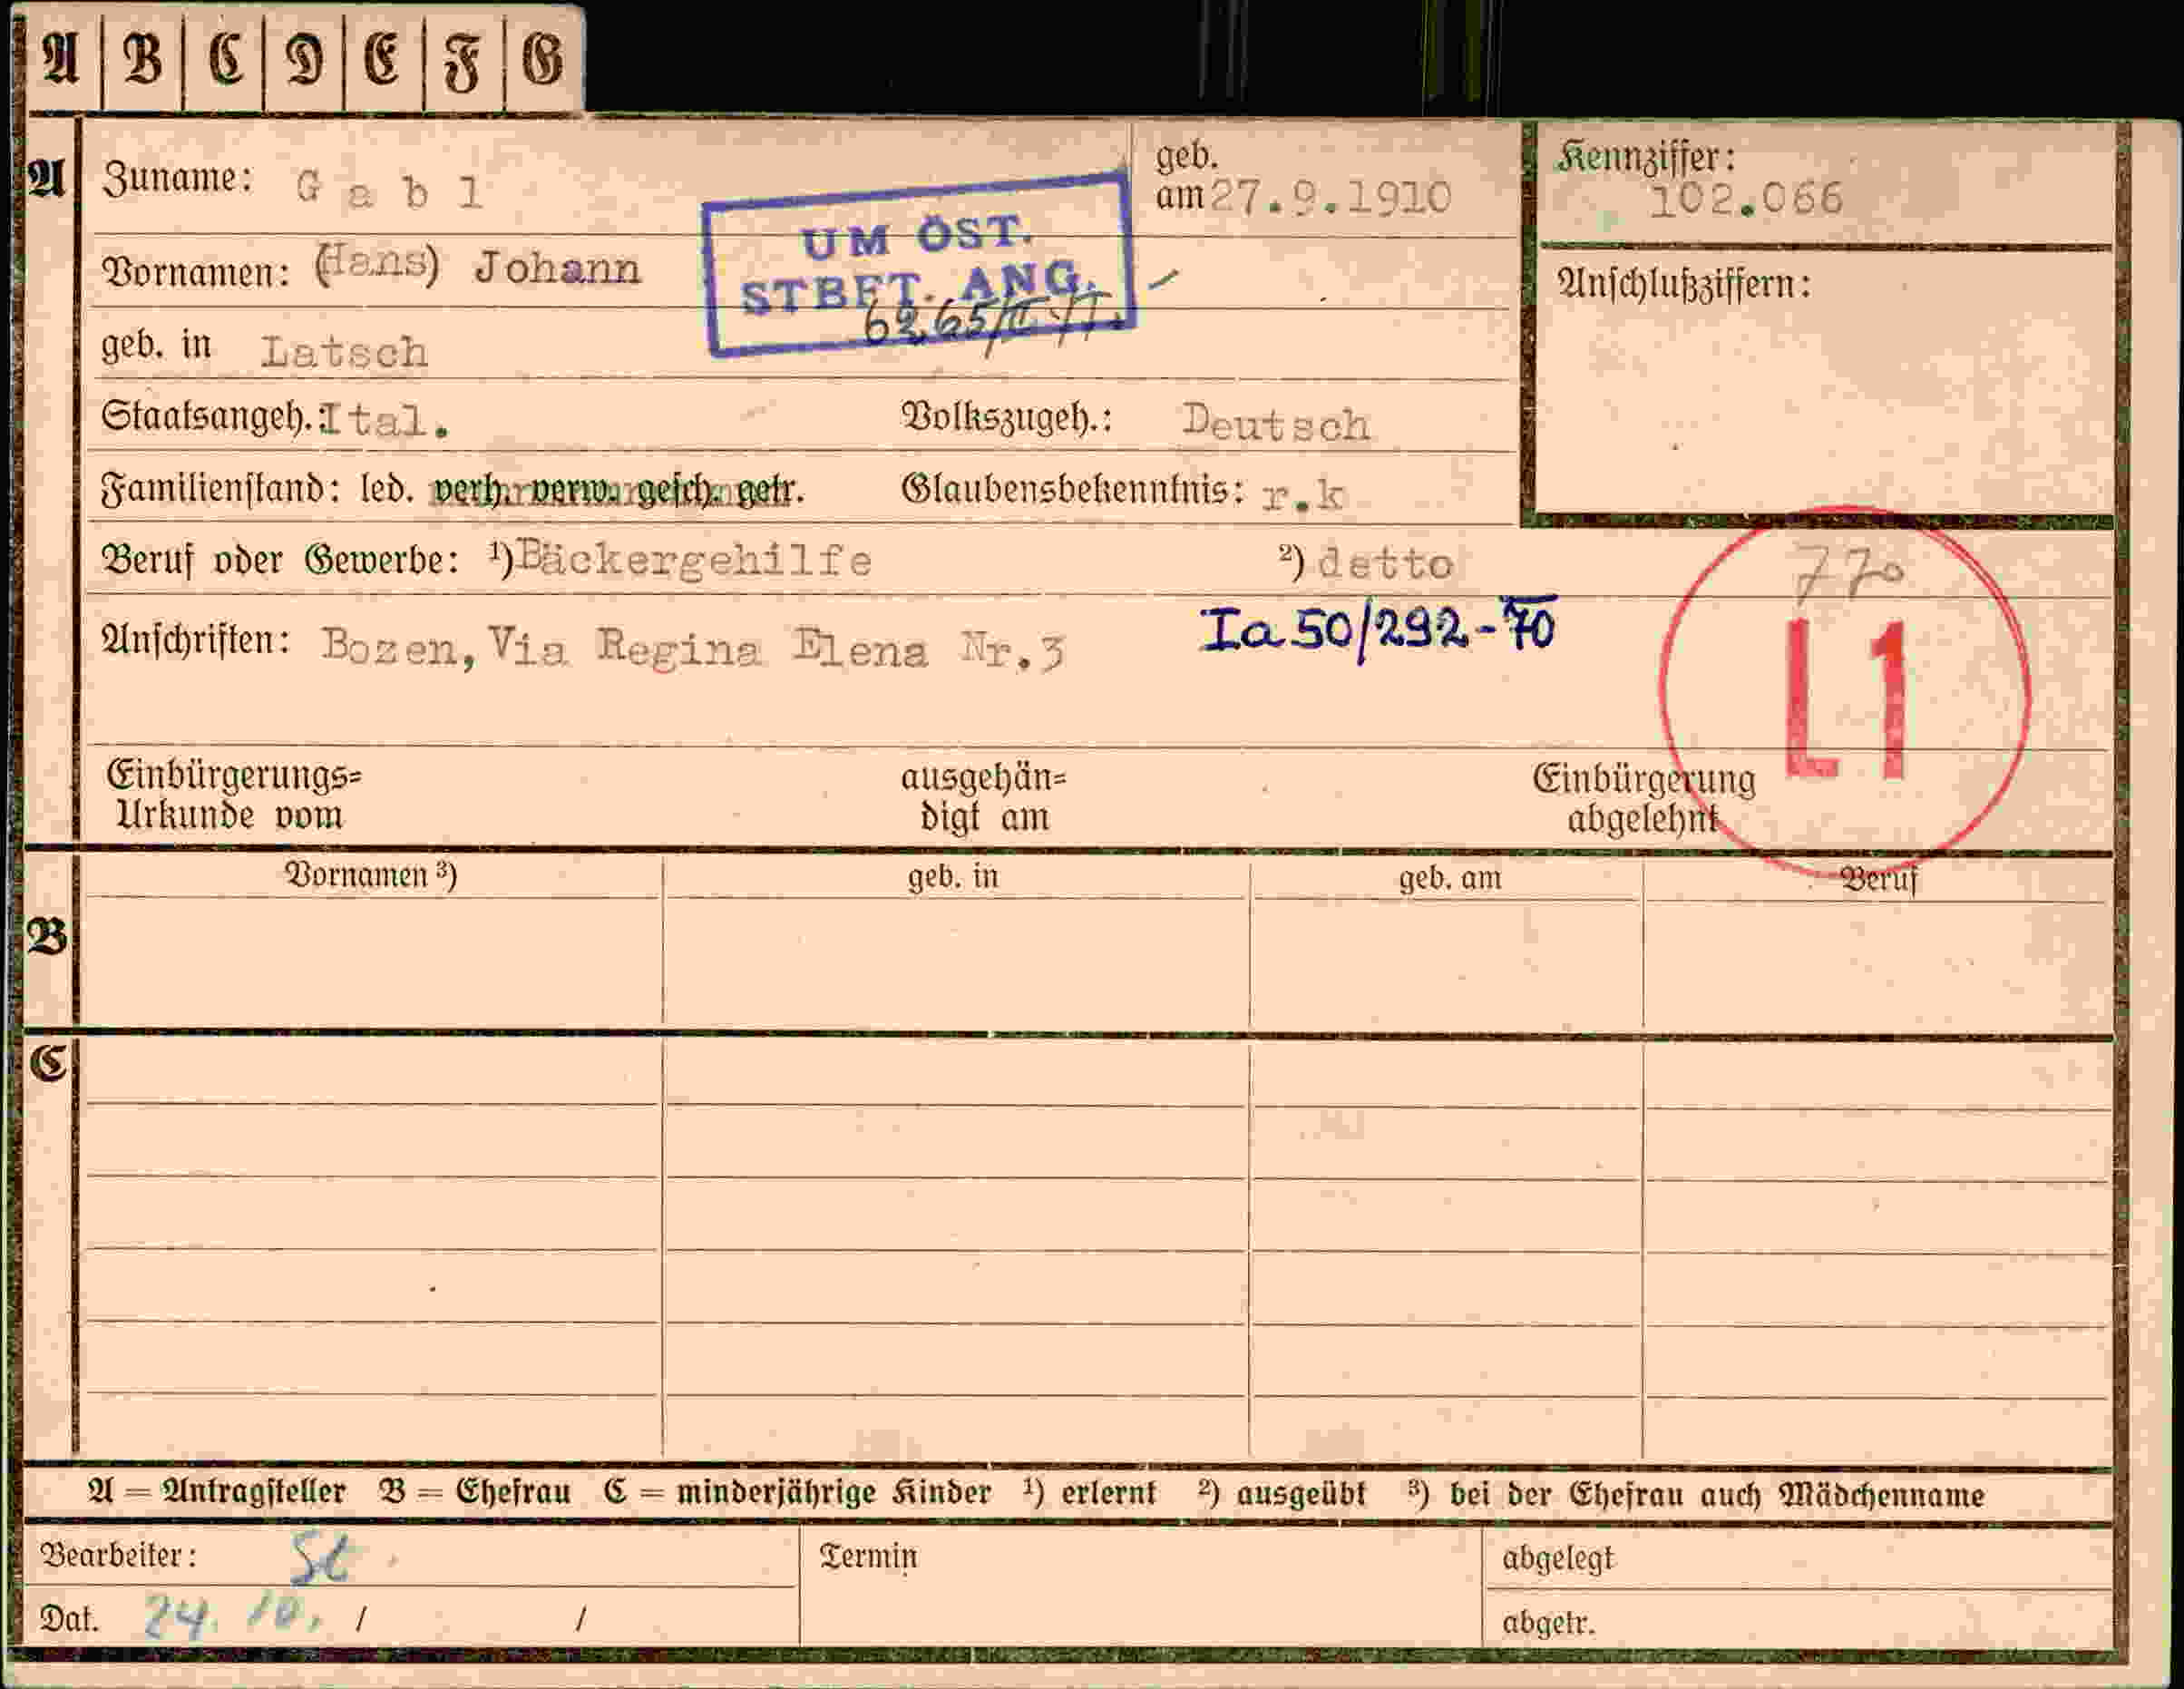 A B C D E F G
A Zuname: Gabl geb. am 27.9.1910 Kennziffer: 102.066
UM ÖST.
STBET. ANG.
Vornamen: (Hans) Johann Anschlußziffern:
geb. in Latsch
Staatsangeh.: Ital. Volkszugeh.: Deutsch
Familienstand: led. verh. verw. gesch. getr. Glaubensbekenntnis: r.k
Beruf oder Gewerbe: ¹) Bäckergehilfe ²) detto 770
Anschriften: Bozen, Via Regina Elena Nr.3 Ia 50/292-70 L1
Einbürgerungs= ausgehän= Einbürgerung
Urkunde vom digt am abgelehnt
Vornamen ³) geb. in geb. am Beruf
B
C
A = Antragsteller B = Ehefrau C = minderjährige Kinder ¹) erlernt ²) ausgeübt ³) bei der Ehefrau auch Mädchenname
Bearbeiter: Termin abgelegt
Dat. 24. 10. / / abgetr.